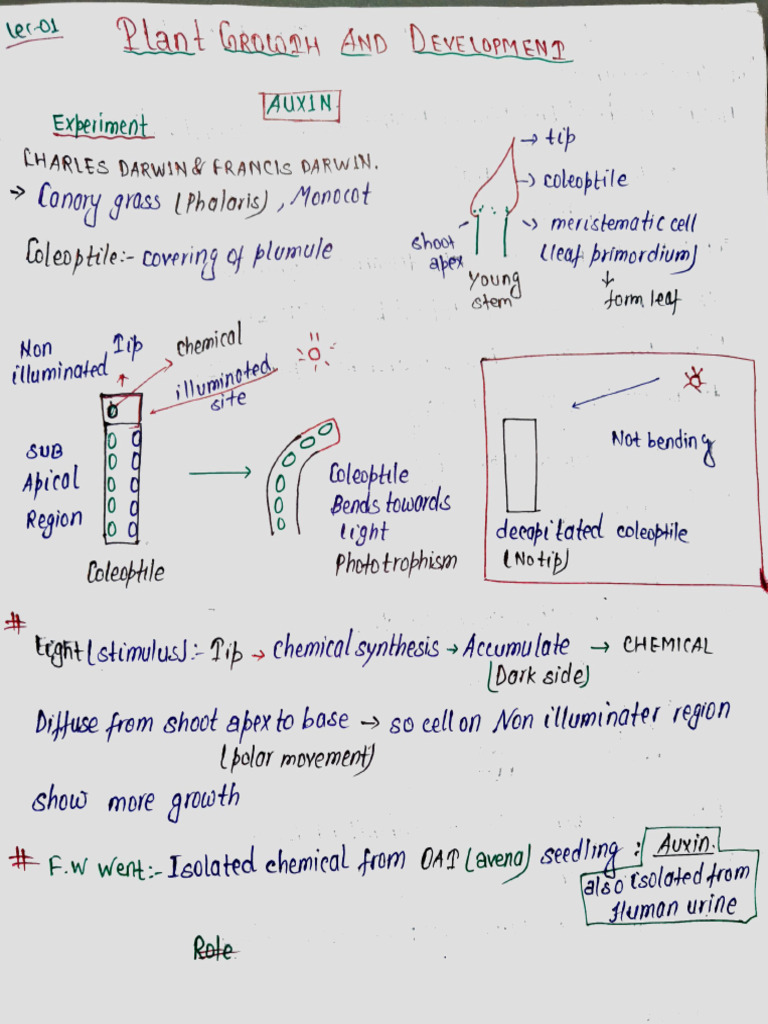 Lec-01
Plant GROWTH AND DEVELOPMENT
AUXIN
Experiment
CHARLES DARWIN & FRANCIS DARWIN.
→ Canary grass (Phalaris), Monocot
Coleoptile:- covering of plumule
→ tip
→ coleoptile
→ meristematic cell
(leaf primordium)
↓
form leaf
shoot
apex
young
stem
Non
illuminated
Tip
chemical
illuminated
site
SUB
Apical
Region
Coleoptile
Coleoptile
Bends towards
light
Phototrophism
Not bending
decapitated coleoptile
(No tip)
# Light (stimulus):- Tip → chemical synthesis → Accumulate → CHEMICAL
(Dark side)
Diffuse from shoot apex to base → so cell on Non illuminater region
(polar movement)
show more growth
# F.W Went:- Isolated chemical from OAT (avena) seedling : Auxin.
also isolated from
Human urine
Role